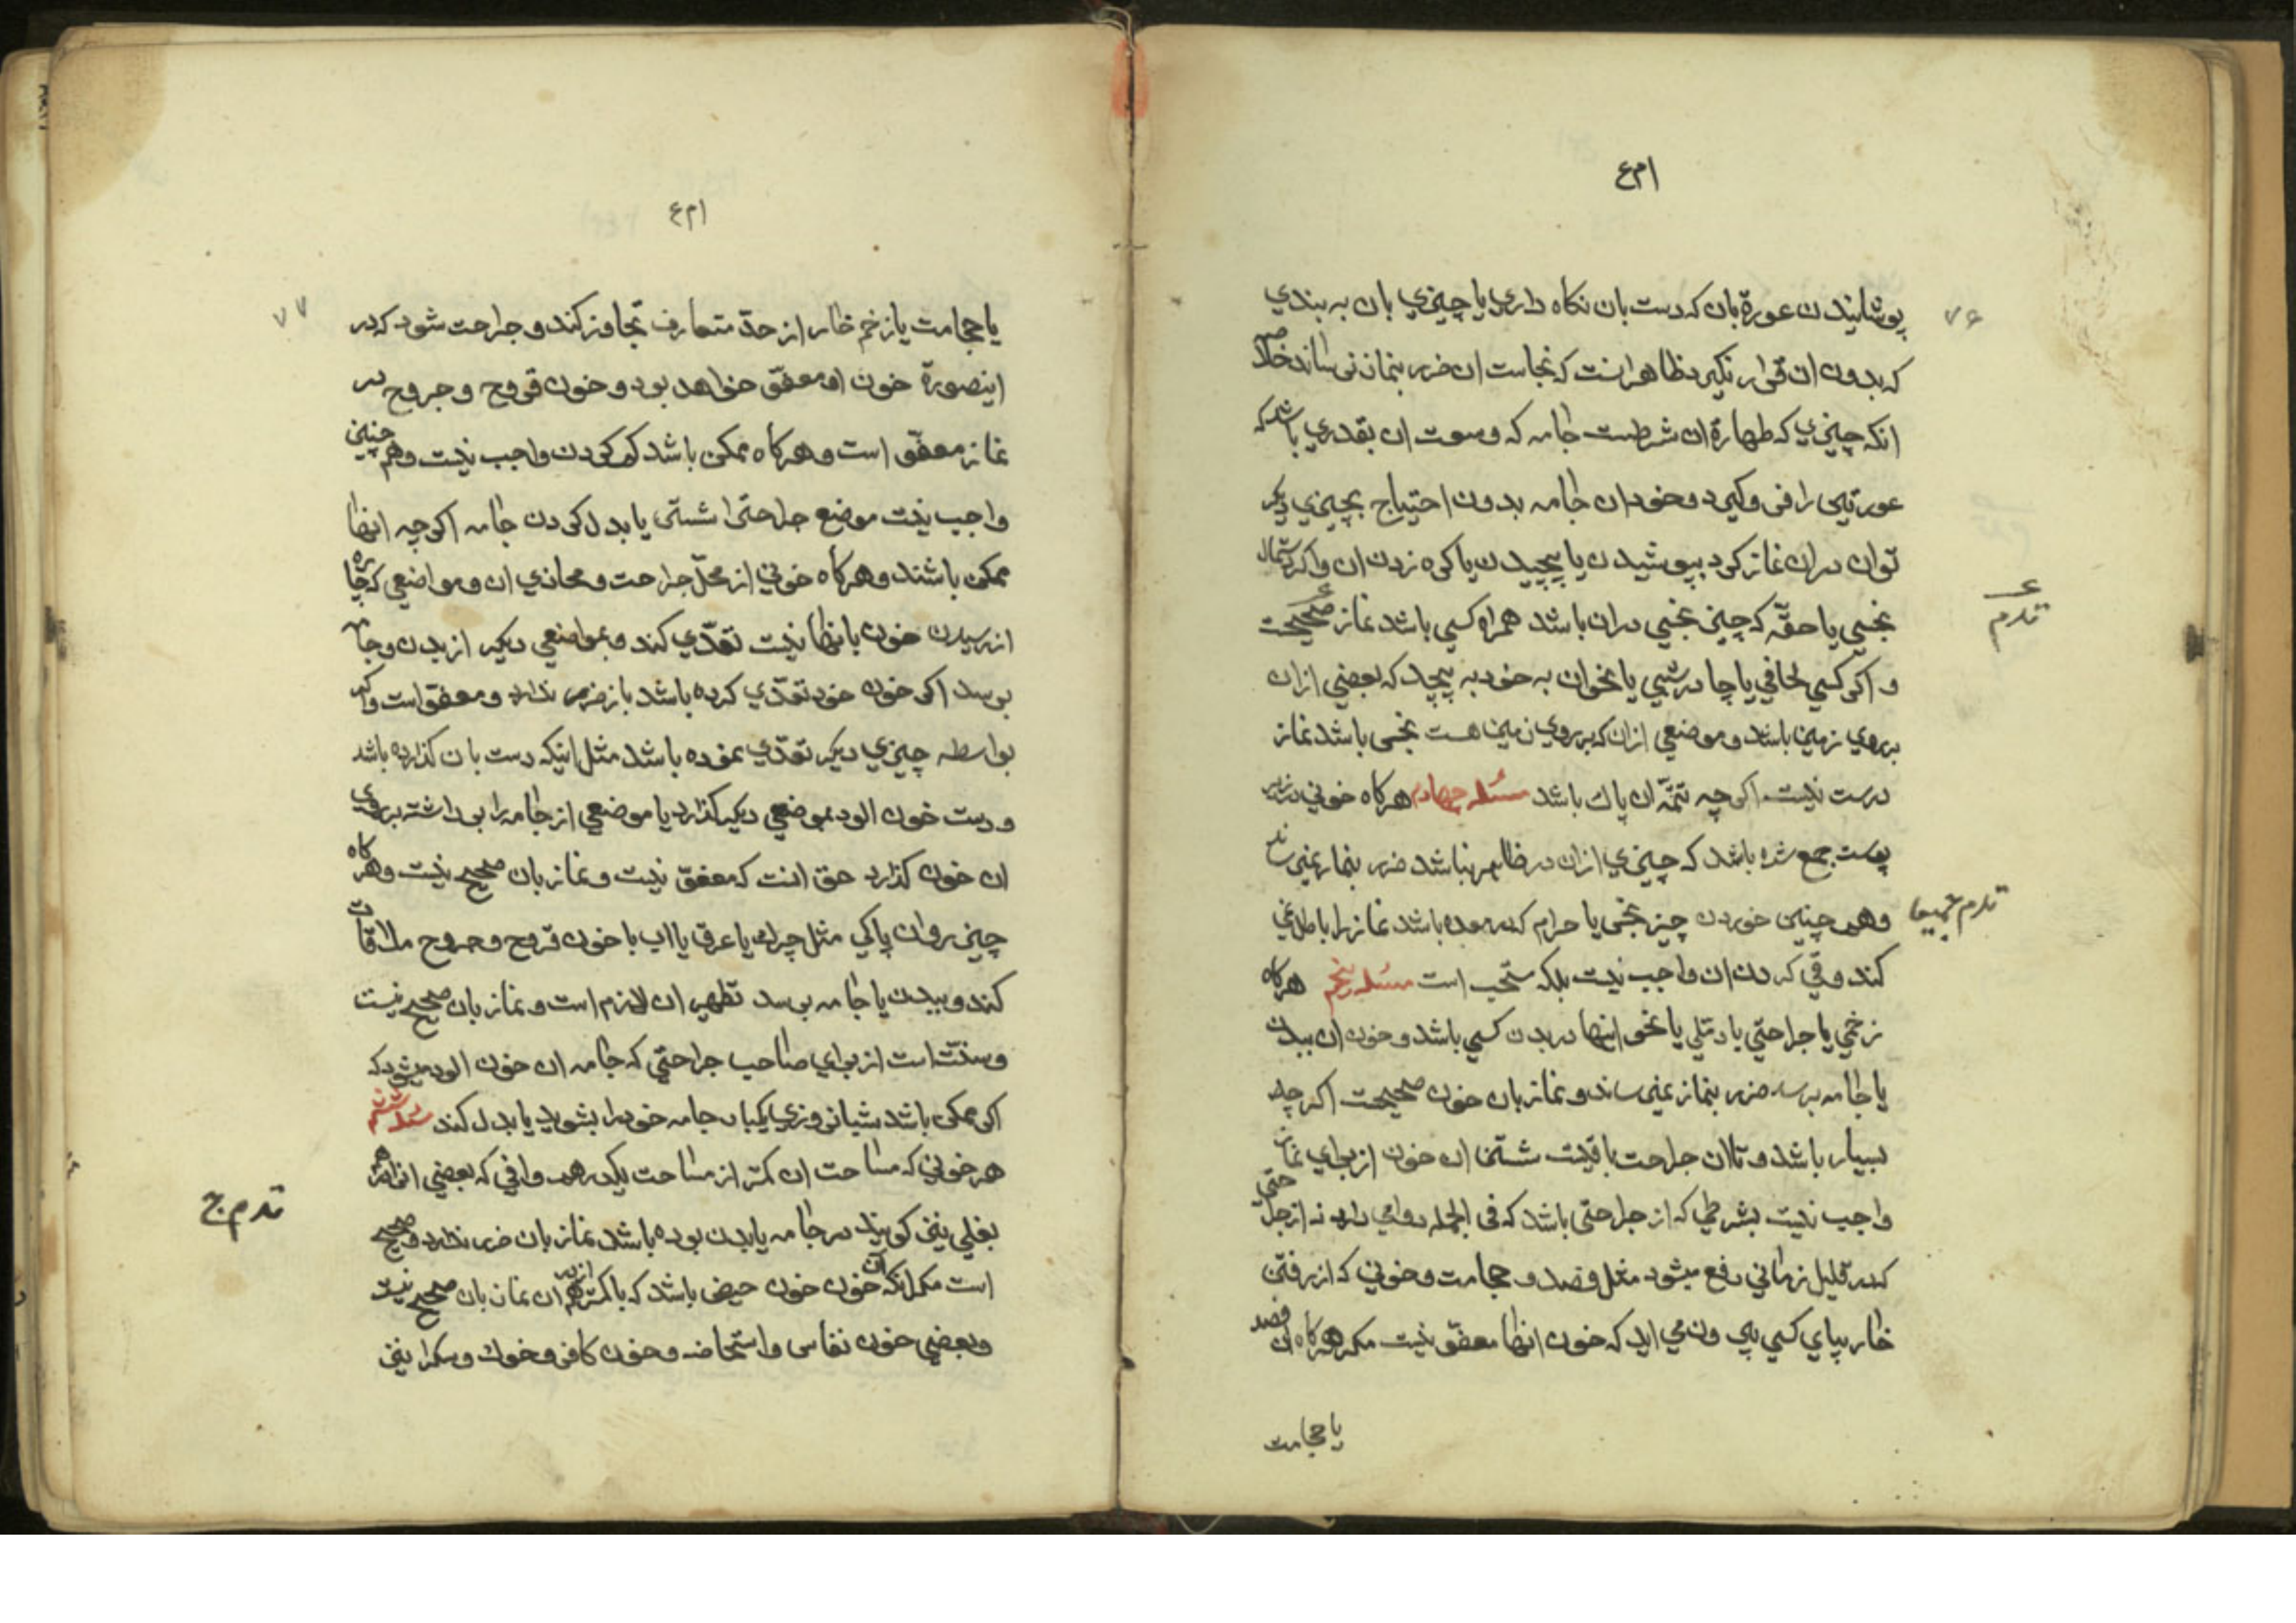 ۷۶
پوشانیدن عورة بان که دست بان نکاه داری یا چیزی بان به بندی
که بدون ان قرار نکیرد ظاهر انست که نجاست ان ضرر بنماز نمی رساند خلاصه
انکه چیزی که طهارة ان شرطست جامه که وسعت ان بقدری باشد که
عورتین را فرو کیرد و خود ان جامه بدون احتیاج بچیزی دیکر
توان دران نماز کرد بپوشیدن یا پیچیدن یا کره زدن ان و اکر دستمال
نجسی یا حقّه که چیز نجسی دران باشد همراه کسی باشد نماز صحیحست
و اکر کسی لحافی یا چادر شبی یا نحو ان به خود به پیچد که بعضی ازان
برروی زمین باشد و موضعی ازان که برروی زمین هست نجس باشد نماز
درست نیست اکرچه تتمّه ان پاك باشد مسئله چهارم هرکاه خونی در زیر
پوست جمع شده باشد که چیزی ازان در ظاهر نباشد ضرر بنماز نمی رساند
وهم چنین خوردن چیز نجس یا حرام که در معده باشد نماز را باطل نمی
کند و قی کردن ان واجب نیست بلکه مستحب است مسئله پنجم هرکاه
زخمی یا جراحتی یا دملی یا نحو اینها در بدن کسی باشد و خون ان ببدن
یا جامه برسد ضرر بنماز نمیرساند و نماز بان خون صحیحست اکرچه
بسیار باشد و تا ان جراحت باقیست شستن ان خون از برای نماز
واجب نیست بشرطی که از جراحتی باشد که فی الجمله دوامی دارد نه از جراحتی
که در قلیل زمانی رفع میشود مثل فصد و حجامت و خونی که از رفتن
خار بپای کسی بیرون می اید که خون انها معفوّ نیست مکر هرکاه ان فصد
یا حجامت
۷۷
یا حجامت یا زخم خار از حدّ متعارف تجاوز کند و جراحت شود که در
اینصورة خون او معفوّ خواهد بود و خون قروح و جروح در
نماز معفوّ است و هرکاه ممکن باشد کم کردن واجب نیست و هم چنین
واجب نیست موضع جراحت را شستن یا بدل کردن جامه اکرچه انها
ممکن باشند و هرکاه خونی از محلّ جراحت و محاذی ان و مواضعی که چاره
از رسیدن خون بانها نیست تعدّی کند و بمواضعی دیکر از بدن و جامه
برسد اکر خون خود تعدّی کرده باشد باز ضرر ندارد و معفوّ است و اکر
بواسطه چیزی دیکر تعدّی نموده باشد مثل اینکه دست بان کذارده باشد
و دست خون الود بموضعی دیکر کذارد یا موضعی از جامه را بر داشته بر روی
ان خون کذارد حق انست که معفوّ نیست و نماز بان صحیح نیست و هرکاه
چیز روان پاکی مثل چرك یا عرق یا اب با خون قروح و جروح ملاقات
کند و ببدن یا جامه برسد تطهیر ان لازم است و نماز بان صحیح نیست
و سنّت است از برای صاحب جراحتی که جامه ان خون الود میشود که
اکر ممکن باشد شبانروزی یکبار جامه خود را بشوید یا بدل کند مسئله ششم
هر خونی که مساحت ان کمتر از مساحت یکدرهم وافی که بعضی انرا درهم
بغلی نیز کویند در جامه یا بدن بوده باشد نماز بان ضرر ندارد و صحیح
است مکر انکه ان خون خون حیض باشد که با کمتر از درهم ان نماز بان صحیح نیست
و بعضی خون نفاس و استحاضه و خون کافر و خوك و سك را نیز